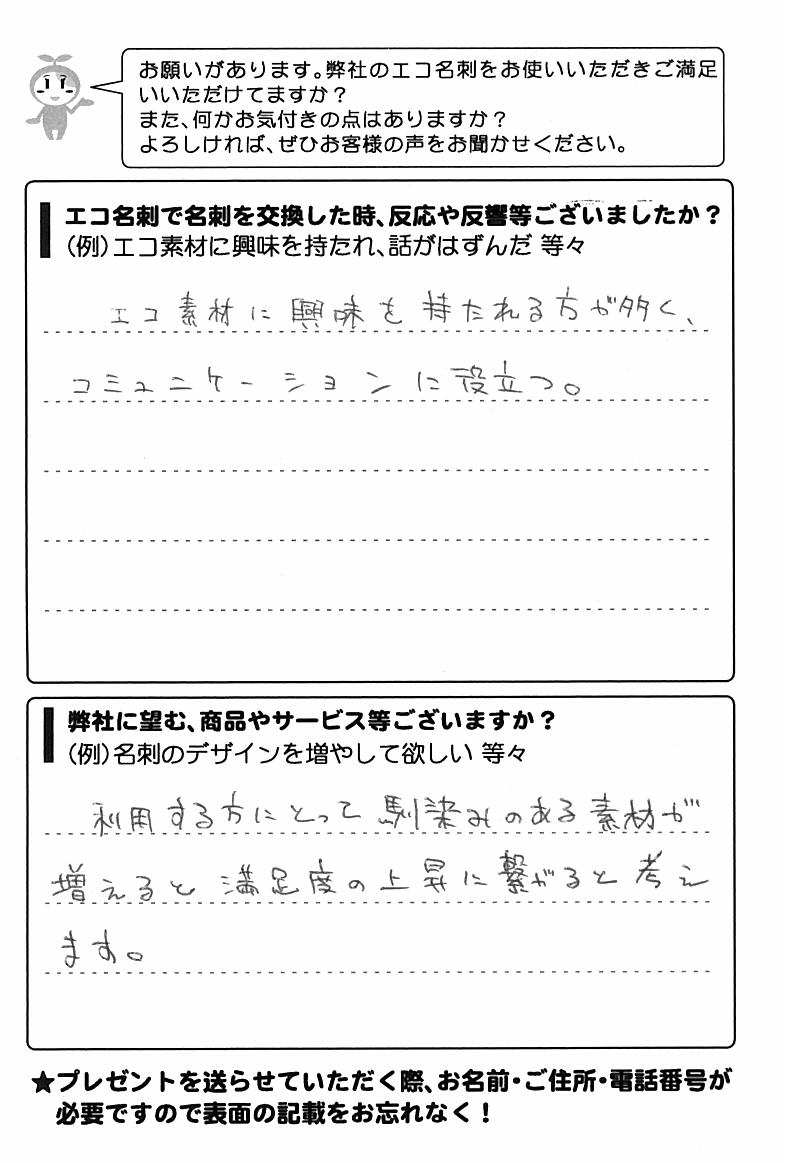 お願いがあります。弊社のエコ名刺をお使いいただきご満足
いいただけてますか？
また、何かお気付きの点はありますか？
よろしければ、ぜひお客様の声をお聞かせください。
エコ名刺で名刺を交換した時、反応や反響等ございましたか？
（例）エコ素材に興味を持たれ、話がはずんだ 等々
エコ素材に興味を持たれる方が多く、
コミュニケーションに役立つ。
弊社に望む、商品やサービス等ございますか？
（例）名刺のデザインを増やして欲しい 等々
利用する方にとって馴染みのある素材が
増えると満足度の上昇に繋がると考え
ます。
★プレゼントを送らせていただく際、お名前・ご住所・電話番号が
必要ですので表面の記載をお忘れなく！